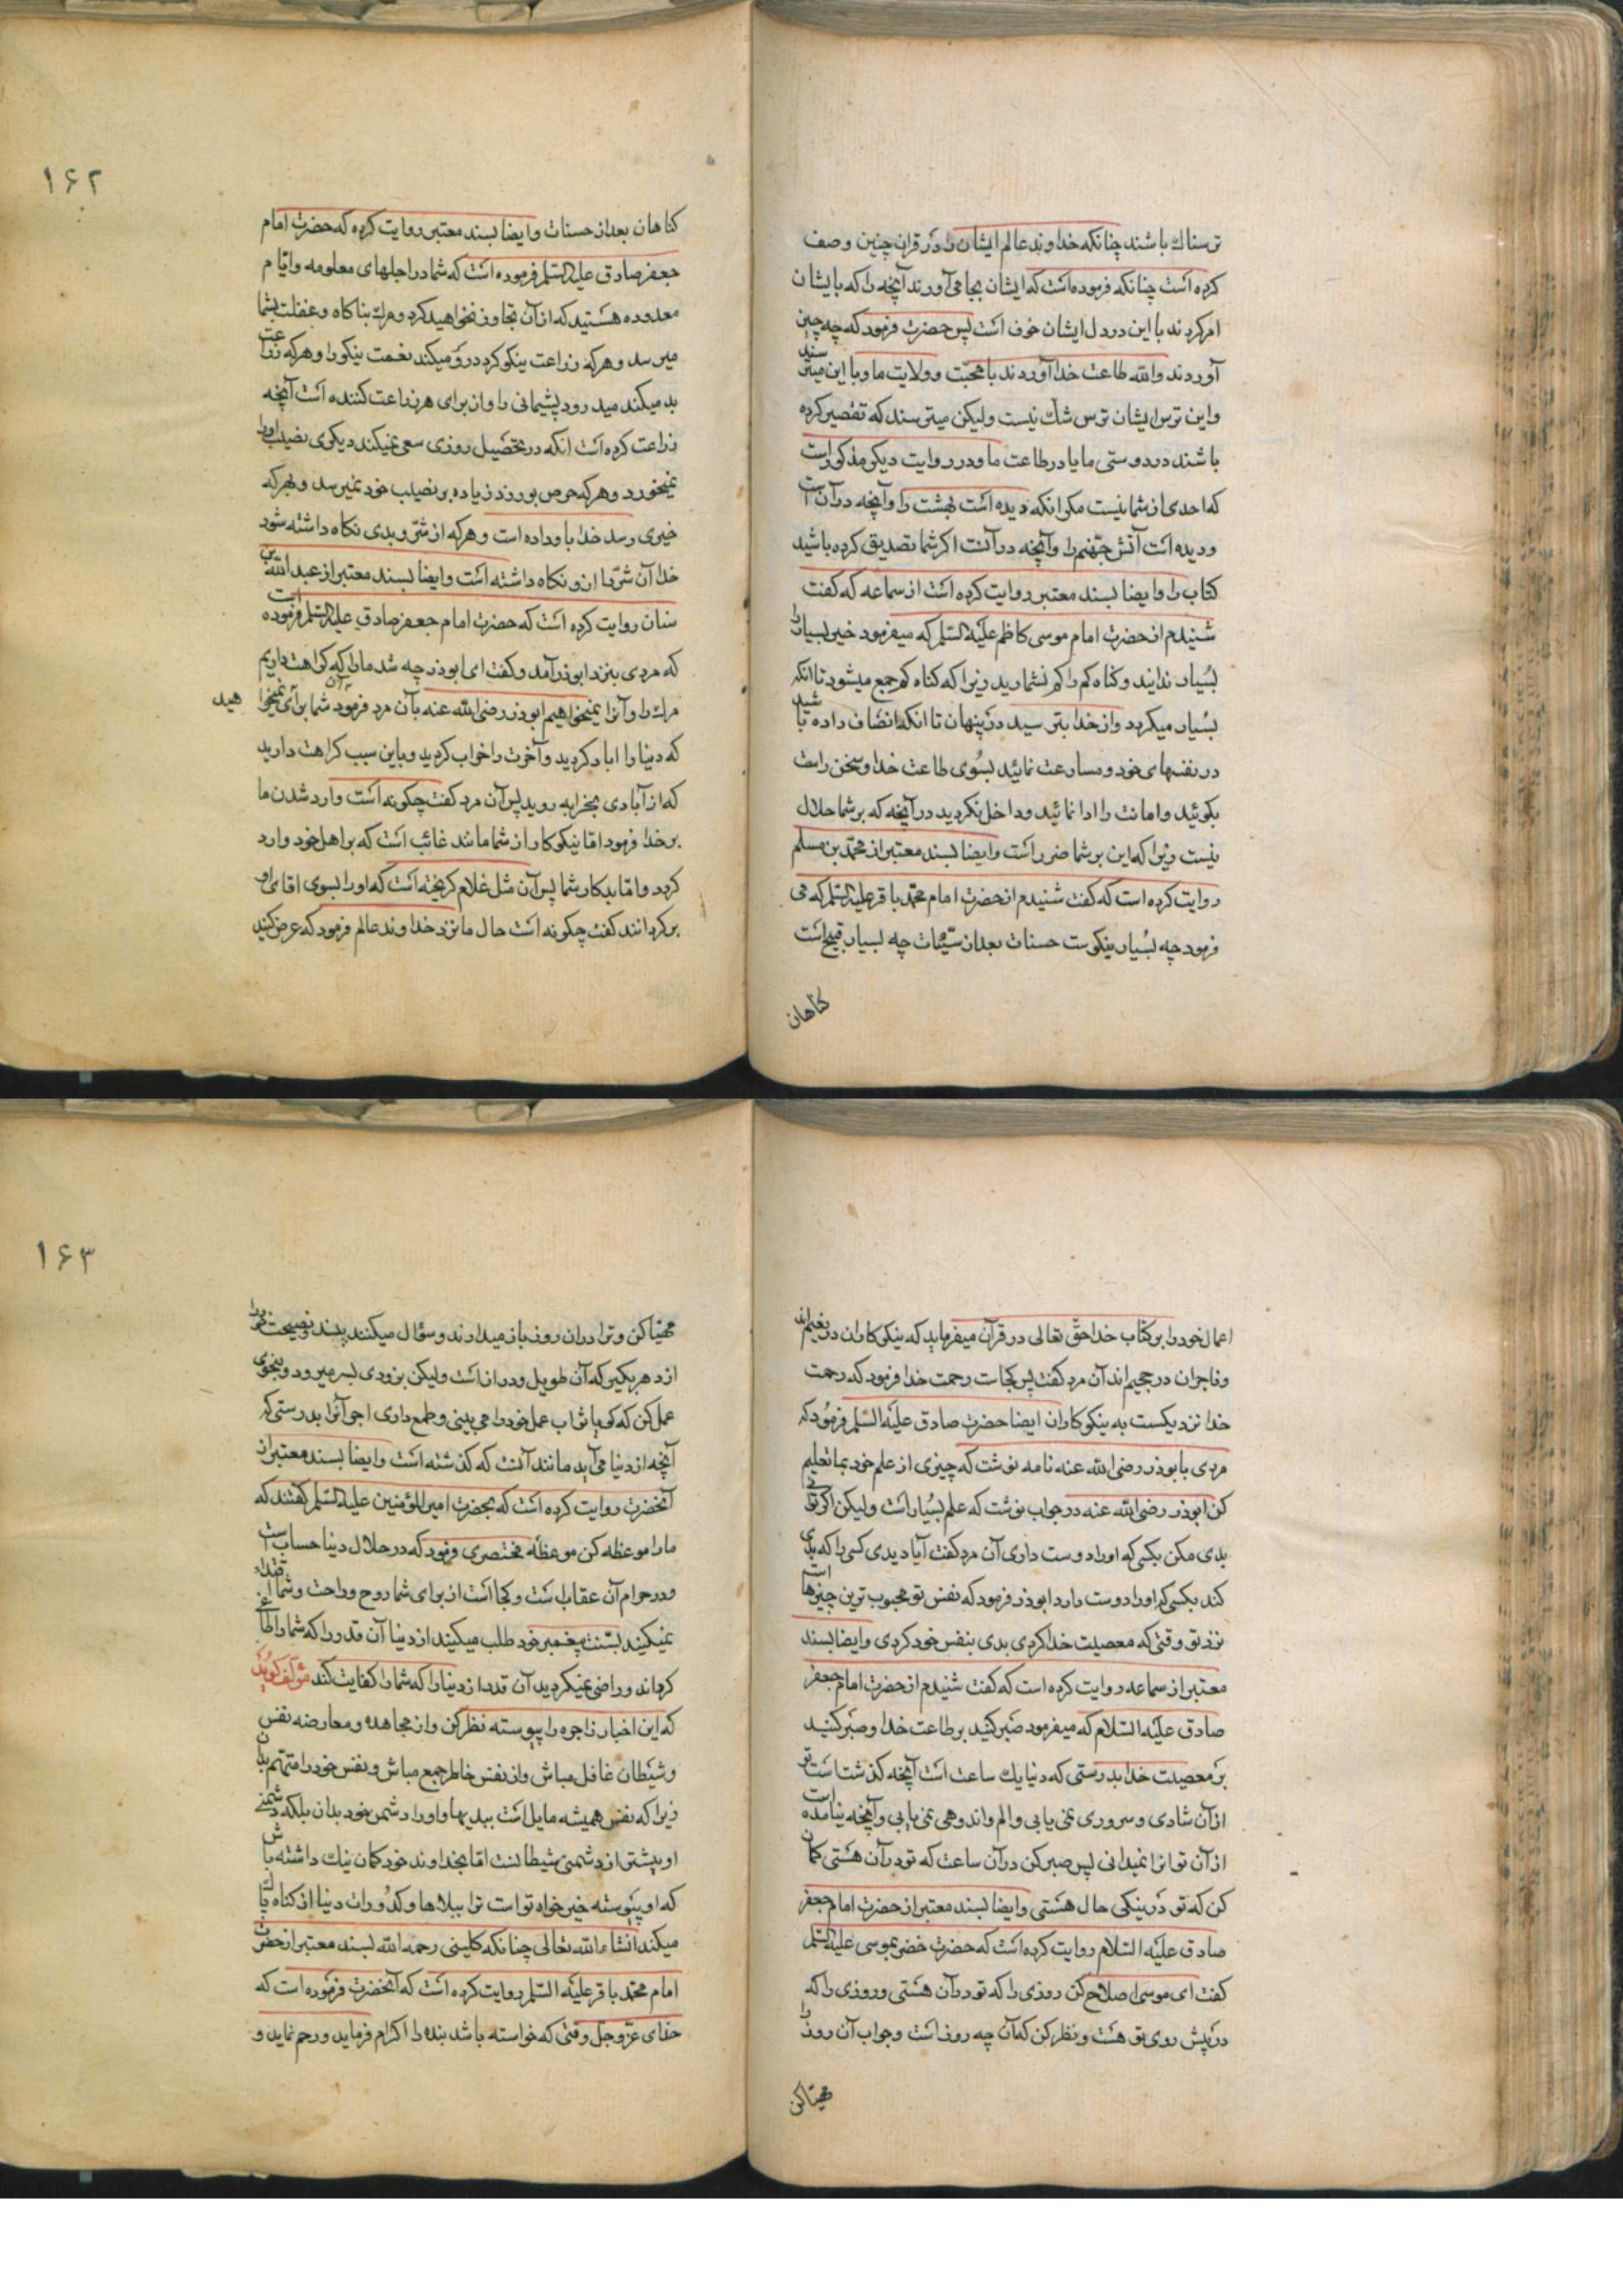 ترسناك باشند چنانكه خداوند عالم ايشان را در قران چنين وصف
كرده است چنانكه فرموده است كه ايشان بجا مى‌آورند آنچه را كه بايشان
امر كردند با اين در دل ايشان خوف است پس حضرت فرمود كه چه چيز
آوردند والله طاعت خدا آوردند با محبت و ولايت ما و با اين ميترسند
و اين ترس ايشان ترس شك نيست وليكن ميترسند كه تقصير كرده
باشند در دوستى ما يا در طاعت ما و در روايت ديكر مذكور است
كه احدى از شما نيست مكر انكه ديده است بهشت را و آنچه در آن است
و ديده است آتش جهنم را و آنچه در آنست اكر شما تصديق كرده باشيد
كتاب را و ايضا بسند معتبر روايت كرده است از سماعه كه كفت
شنيدم از حضرت امام موسى كاظم عليه السلم كه ميفرمود خير بسيار را
بسيار ندانيد و كناه كم را كم نشماريد زيرا كه كناه كم جمع ميشود تا انكه
بسيار ميكردد و از خدا بترسيد در پنهان تا انكه انصاف داده باشيد
در نفسهاى خود و مسارعت نمائيد بسوى طاعت خدا و سخن راست
بكوئيد و امانت را ادا نمائيد و داخل نكرديد در آنچه كه بر شما حلال
نيست زيرا كه اين بر شما ضرر است و ايضا بسند معتبر از محمد بن مسلم
روايت كرده است كه كفت شنيدم از حضرت امام محمد باقر عليه السلم كه مى
فرمود چه بسيار نيكوست حسنات بعد از سيئات چه بسيار قبيح است
كناهان
۱۶۲
كناهان بعد از حسنات و ايضا بسند معتبر روايت كرده كه حضرت امام
جعفر صادق عليه السلم فرموده است كه شما در اجلهاى معلومه و ايام
معدوده هستيد كه از آن تجاوز نخواهيد كرد و مرك بناكاه و غفلت بشما
ميرسد و هركه زراعت نيكو كرد درو ميكند نعمت نيكو را و هركه زراعت
بد ميكند ميدرود پشيمانى را و از براى هر زراعت كننده است آنچه
زراعت كرده است انكه در تحصيل روزى سعى نميكند ديكرى نصيب او را
نميخورد و هركه حرص بورزد زياده بر نصيب خود نميرسد و بهركه
خيرى رسد خدا باو داده است و هركه از شر و بدى نكاه داشته شود
خدا آن شر را ازو نكاه داشته است و ايضا بسند معتبر از عبد الله بن
سنان روايت كرده است كه حضرت امام جعفر صادق عليه السلم فرموده است
كه مردى بنزد ابوذر آمد و كفت اى ابوذر چه شد ما را كه كراهت داريم
مرك را و آنرا نميخواهيم ابوذر رضى الله عنه بآن مرد فرمود شما براى آن نميخوا هيد
كه دنيا را اباد كرديد و آخرت را خراب كرديد و باين سبب كراهت داريد
كه از آبادى بخرابه رويد پس آن مرد كفت چكونه است وارد شدن ما
بر خدا فرمود اما نيكوكار از شما مانند غائب است كه بر اهل خود وارد
كردد و اما بدكار شما پس آن مثل غلام كريخته است كه او را بسوى اقاى او
بر كردانند كفت چكونه است حال ما نزد خداوند عالم فرمود كه عرض كنيد
اعمال خود را بر كتاب خدا حق تعالى در قرآن ميفرمايد كه نيكوكاران در نعيم اند
و فاجران در جحيم اند آن مرد كفت پس كجاست رحمت خدا فرمود كه رحمت
خدا نزديكست به نيكوكاران ايضا حضرت صادق عليه السلم فرمود كه
مردى بابوذر رضى الله عنه نامه نوشت كه چيزى از علم خود بما تعليم
كن ابوذر رضى الله عنه در جواب نوشت كه علم بسيار است وليكن اكر توانى
بدى مكن بكسى كه او را دوست دارى آن مرد كفت آيا ديدى كسى را كه بدى
كند بكسى كه او را دوست دارد ابوذر فرمود كه نفس تو محبوب ترين چيزها است
نزد تو وقتى كه معصيت خدا كردى بدى بنفس خود كردى و ايضا بسند
معتبر از سماعه روايت كرده است كه كفت شنيدم از حضرت امام جعفر
صادق عليه السلام كه ميفرمود صبر كنيد بر طاعت خدا و صبر كنيد
بر معصيت خدا بدرستى كه دنيا يك ساعت است آنچه كذشتاست تو
از آن شادى و سرورى نمى يابى و الم و اندوهى نمى يابى و آنچه نيامده است
از آن تو انرا نميدانى پس صبر كن در آن ساعت كه تو در آن هستى كمان
كن كه تو در نيكى حال هستى و ايضا بسند معتبر از حضرت امام جعفر
صادق عليه السلام روايت كرده است كه حضرت خضر بموسى عليه السلم
كفت اى موسى اصلاح كن روزى را كه تو در آن هستى و روزى را كه
در پيش روى تو هست و نظر كن كه آن چه روز است و جواب آن روز را
مهيا كن
۱۶۳
مهيا كن و ترا در ان روز باز ميدارند و سؤال ميكنند پند و نصيحت خود را
از دهر بكير كه آن طويل و دراز است وليكن بزودى بسر ميرود و بنحوى
عمل كن كه كويا ثواب عمل خود را مى بينى و طمع دارى اجر آنرا بدرستى كه
آنچه از دنيا مى آيد مانند آنست كه كذشته است و ايضا بسند معتبر از
آنحضرت روايت كرده است كه بحضرت امير المؤمنين عليه السلم كفتند كه
ما را موعظه كن موعظه مختصرى فرمود كه در حلال دنيا حساب است
و در حرام آن عقاب است و كجا است از براى شما روح و راحت و شما اقتداء
نميكنيد بسنت پيغمبر خود طلب ميكنيد از دنيا آن قدر را كه شما را طاغى
كرداند و راضى نميكرديد آن قدر از دنيا را كه شما را كفايت كند مؤلف كويد
كه اين اخبار زاجره را پيوسته نظر كن و از مجاهده و معارضه نفس
و شيطان غافل مباش و از نفس خاطر جمع مباش و نفس خود را متهم بدان
زيرا كه نفس هميشه مايل است ببديها و او را دشمن خود بدان بلكه دشمنى
او بيشتر از دشمنى شيطانست اما بخداوند خود كمان نيك داشته باش
كه او پيوسته خير خواه تو است ترا ببلاها و كدورات دنيا از كناه پاك
ميكند انشاء الله تعالى چنانكه كلينى رحمه الله بسند معتبر از حضرت
امام محمد باقر عليه السلم روايت كرده است كه آنحضرت فرموده است كه
خداى عز و جل وقتى كه خواسته باشد بنده را اكرام فرمايد و رحم نمايد و